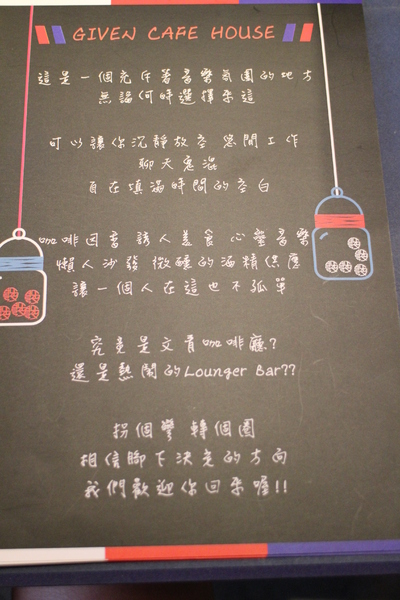 GIVEN CAFE HOUSE
這是一個充斥著音樂氛圍的地方
無論何時選擇來這
可以讓你沉靜放空 悠閒工作
聊天鬼混
自在填滿時間的空白
咖啡因香 誘人美食 心靈音樂
懶人沙發 微醺的酒精供應
讓一個人在這也不孤單
究竟是文青咖啡廳?
還是熱鬧的Lounger Bar??
拐個彎 轉個圈
相信腳下決定的方向
我們歡迎你回來喔!!